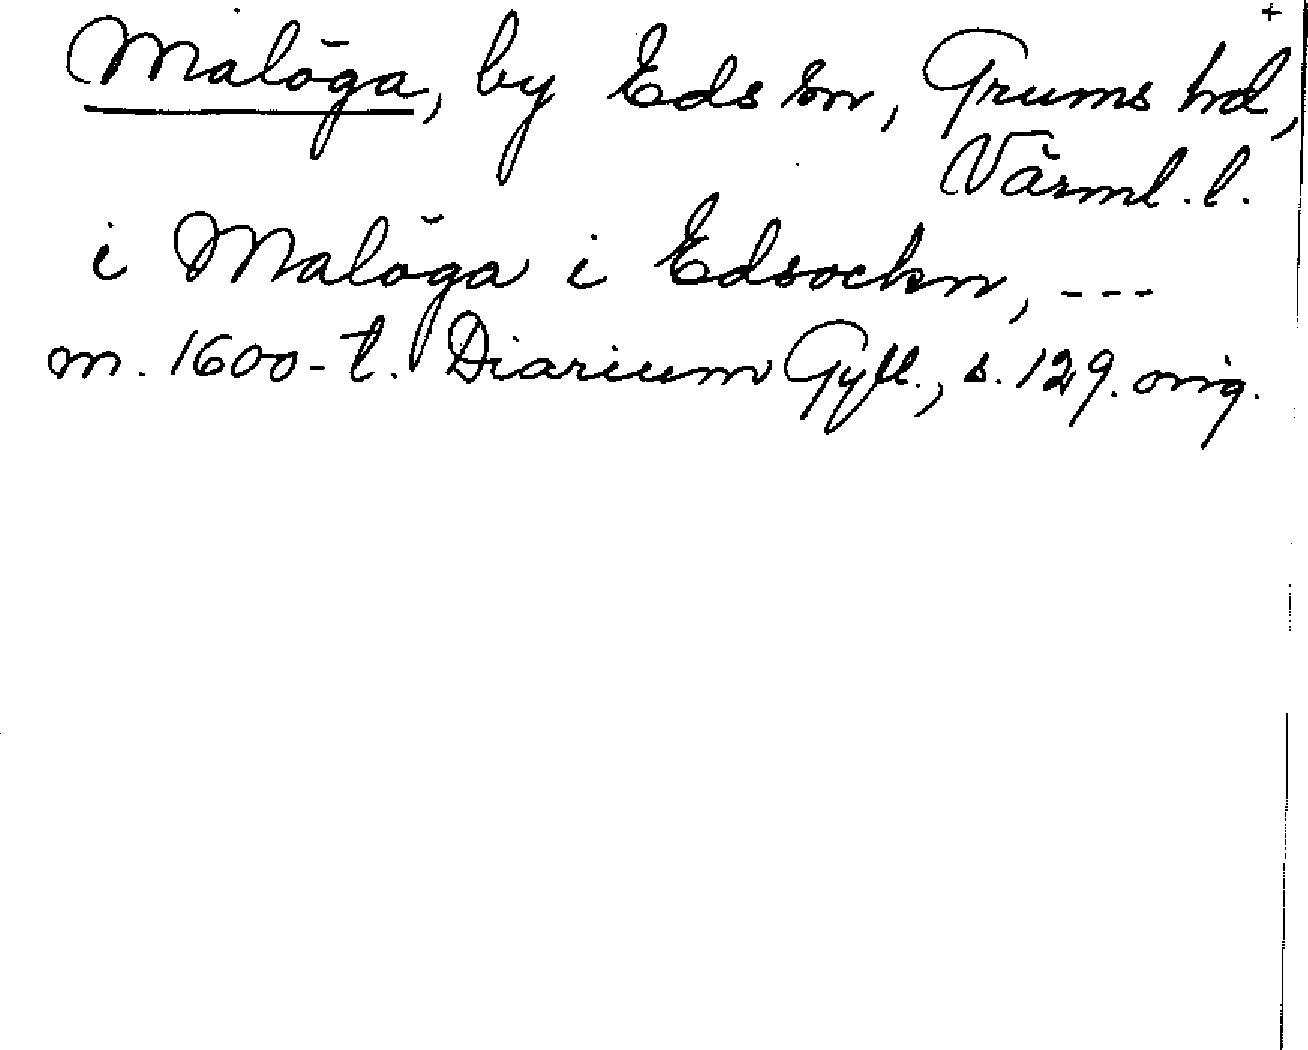 +
Malöga, by Eds sn, Grums hd,
Värml. l.
i Malöga i Edsockn, ---
m. 1600-t. Diarium Gyll., s. 129. orig.